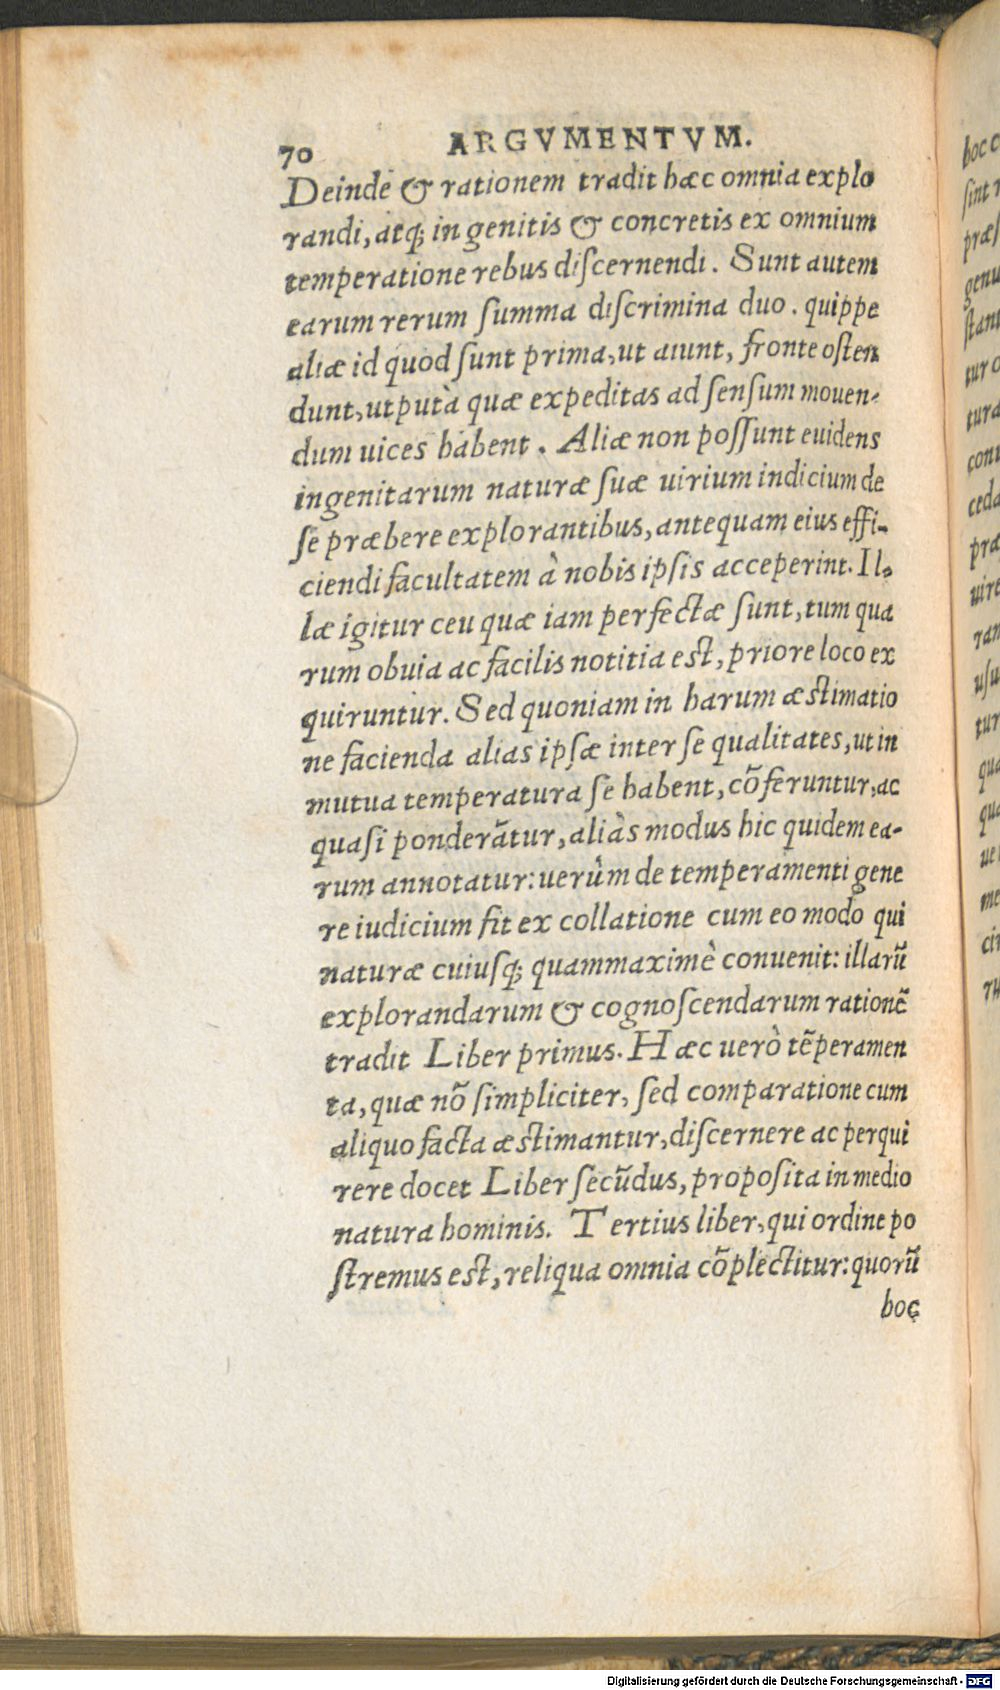 70 ARGVMENTVM.
Deinde & rationem tradit hæc omnia explo
randi, atq; in genitis & concretis ex omnium
temperatione rebus diſcernendi. Sunt autem
earum rerum ſumma diſcrimina duo. quippe
aliæ id quod ſunt prima, ut aiunt, fronte oſten
dunt, utputà quæ expeditas ad ſenſum mouen-
dum uices habent. Aliæ non poſſunt euidens
ingenitarum naturæ ſuæ uirium indicium de
ſe præbere explorantibus, antequam eius effi-
ciendi facultatem à nobis ipſis acceperint. Il-
læ igitur ceu quæ iam perfectæ ſunt, tum qua
rum obuia ac facilis notitia eſt, priore loco ex
quiruntur. Sed quoniam in harum æſtimatio
ne facienda alias ipſæ inter ſe qualitates, ut in
mutua temperatura ſe habent, cõferuntur, ac
quaſi ponderãtur, aliàs modus hic quidem ea-
rum annotatur: uerùm de temperamenti gene
re iudicium fit ex collatione cum eo modo qui
naturæ cuiuſq; quammaximè conuenit: illarũ
explorandarum & cognoſcendarum rationẽ
tradit Liber primus. Hæc uerò tẽperamen
ta, quæ nõ ſimpliciter, ſed comparatione cum
aliquo facta æſtimantur, diſcernere ac perqui
rere docet Liber ſecũdus, propoſita in medio
natura hominis. Tertius liber, qui ordine po
ſtremus eſt, reliqua omnia cõplectitur: quorũ
hoc
Digitalisierung gefördert durch die Deutsche Forschungsgemeinschaft - DFG